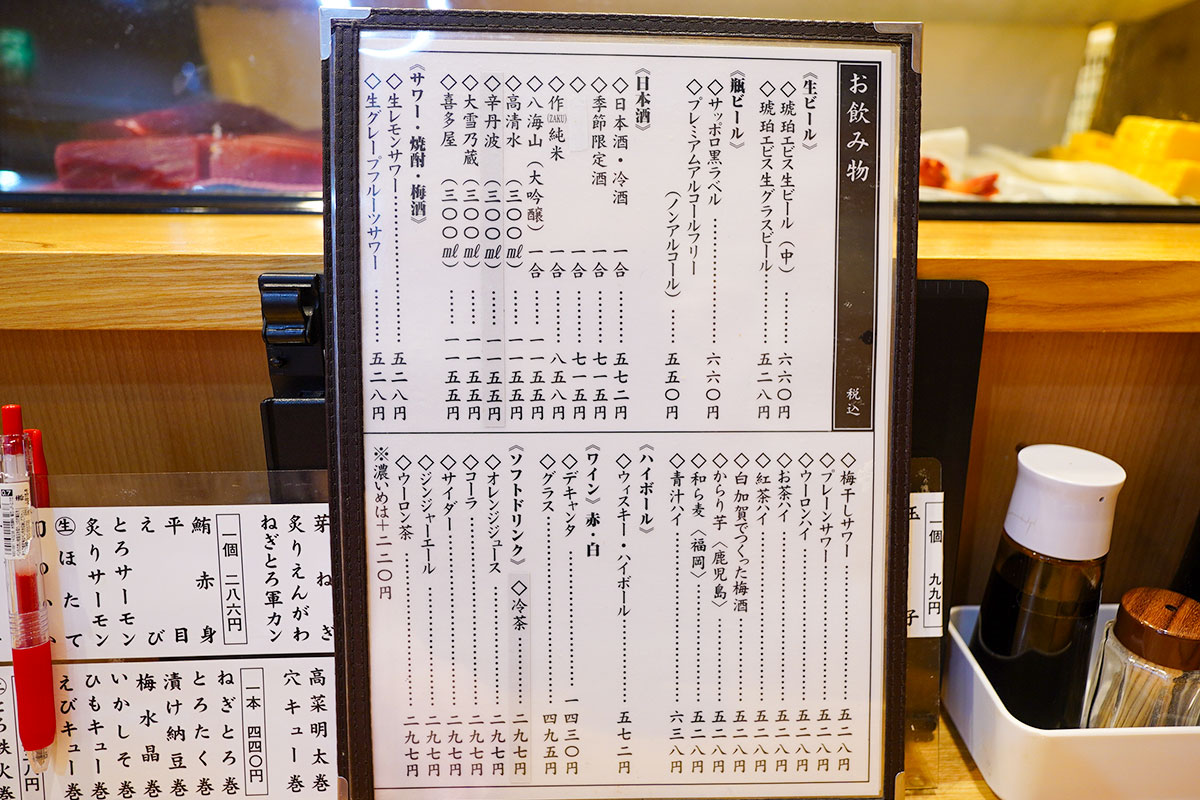 お飲み物 税込
《生ビール》
◇琥珀エビス生ビール(中)……六六〇円
◇琥珀エビス生グラスビール……五二八円
《瓶ビール》
◇サッポロ黒ラベル……六六〇円
◇プレミアムアルコールフリー
(ノンアルコール)……五五〇円
《日本酒》
◇日本酒・冷酒 一合……五七二円
◇季節限定酒 一合……七一五円
◇ 一合……七一五円
◇作(ZAKU)純米 一合……八五八円
◇八海山(大吟醸)一合……一一五五円
◇高清水(三〇〇㎖)……一一五五円
◇辛丹波(三〇〇㎖)……一一五五円
◇大雪乃蔵(三〇〇㎖)……一一五五円
◇喜多屋(三〇〇㎖)……一一五五円
《サワー・焼酎・梅酒》
◇生レモンサワー……五二八円
◇生グレープフルーツサワー……五二八円
◇梅干しサワー……五二八円
◇プレーンサワー……五二八円
◇ウーロンハイ……五二八円
◇お茶ハイ……五二八円
◇紅茶ハイ……五二八円
◇白加賀でつくった梅酒……五二八円
◇からり芋〈鹿児島〉……五二八円
◇和ら麦〈福岡〉……五二八円
◇青汁ハイ……六三八円
《ハイボール》
◇ウィスキー・ハイボール……五七二円
《ワイン》赤・白
◇デキャンタ……一四三〇円
◇グラス……四九五円
《ソフトドリンク》◇冷茶……二九七円
◇オレンジジュース……二九七円
◇コーラ……二九七円
◇サイダー……二九七円
◇ジンジャーエール……二九七円
◇ウーロン茶……二九七円
※濃いめは+一一〇円
芽ねぎ
炙りえんがわ
ねぎとろ軍カン
一個 二八六円
鮪赤身
平目
えび
とろサーモン
炙りサーモン
生ほたて
高菜明太巻
穴キュー巻
一本 四四〇円
ねぎとろ巻
とろたく巻
漬け納豆巻
梅水晶巻
いかしそ巻
ひもキュー巻
えびキュー巻
一個 九九円
玉子